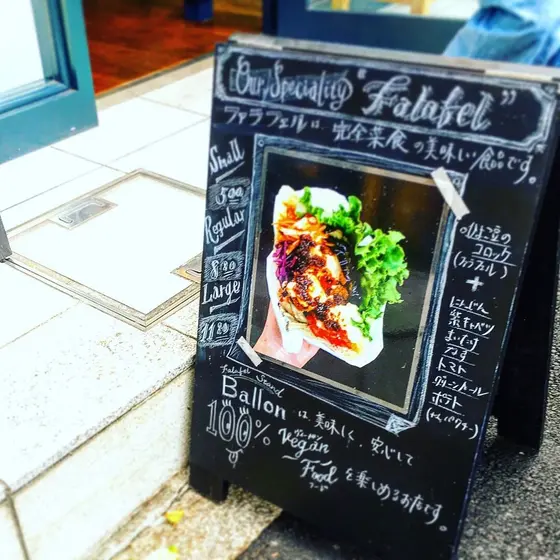 Our Speciality "Falafel"
ファラフェルは、完全菜食の美味しい食品です。
Small
500
Regular
880
Large
1180
ひよこ豆の
コロッケ
(ファラフェル)
+
にんじん
紫キャベツ
トマト
ポテト
Falafel Stand
Ballon は美味しく、安心して
100% Vegan
Food を楽しめるお店です。
フード